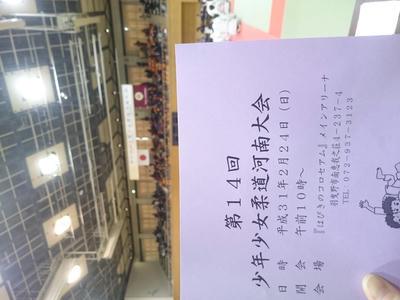 第14回
少年少女柔道河南大会
日時 平成31年2月24日(日)
開会 午前10時～
会場 『はびきのコロセアム』メインアリーナ
羽曳野市南恵我之荘4-237-4
TEL 072-937-3123